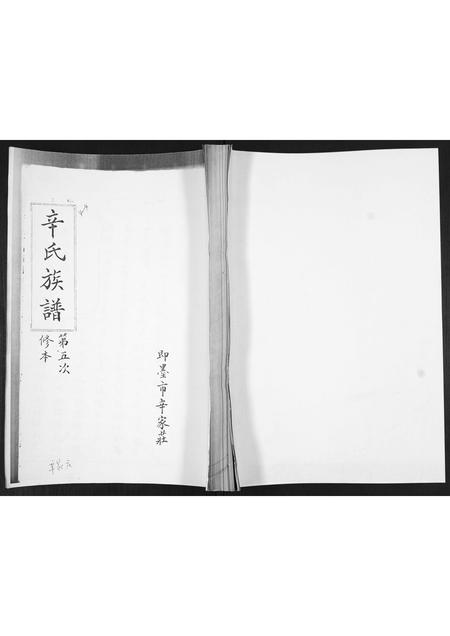 辛氏族譜
第五次
修本
即墨市辛家莊